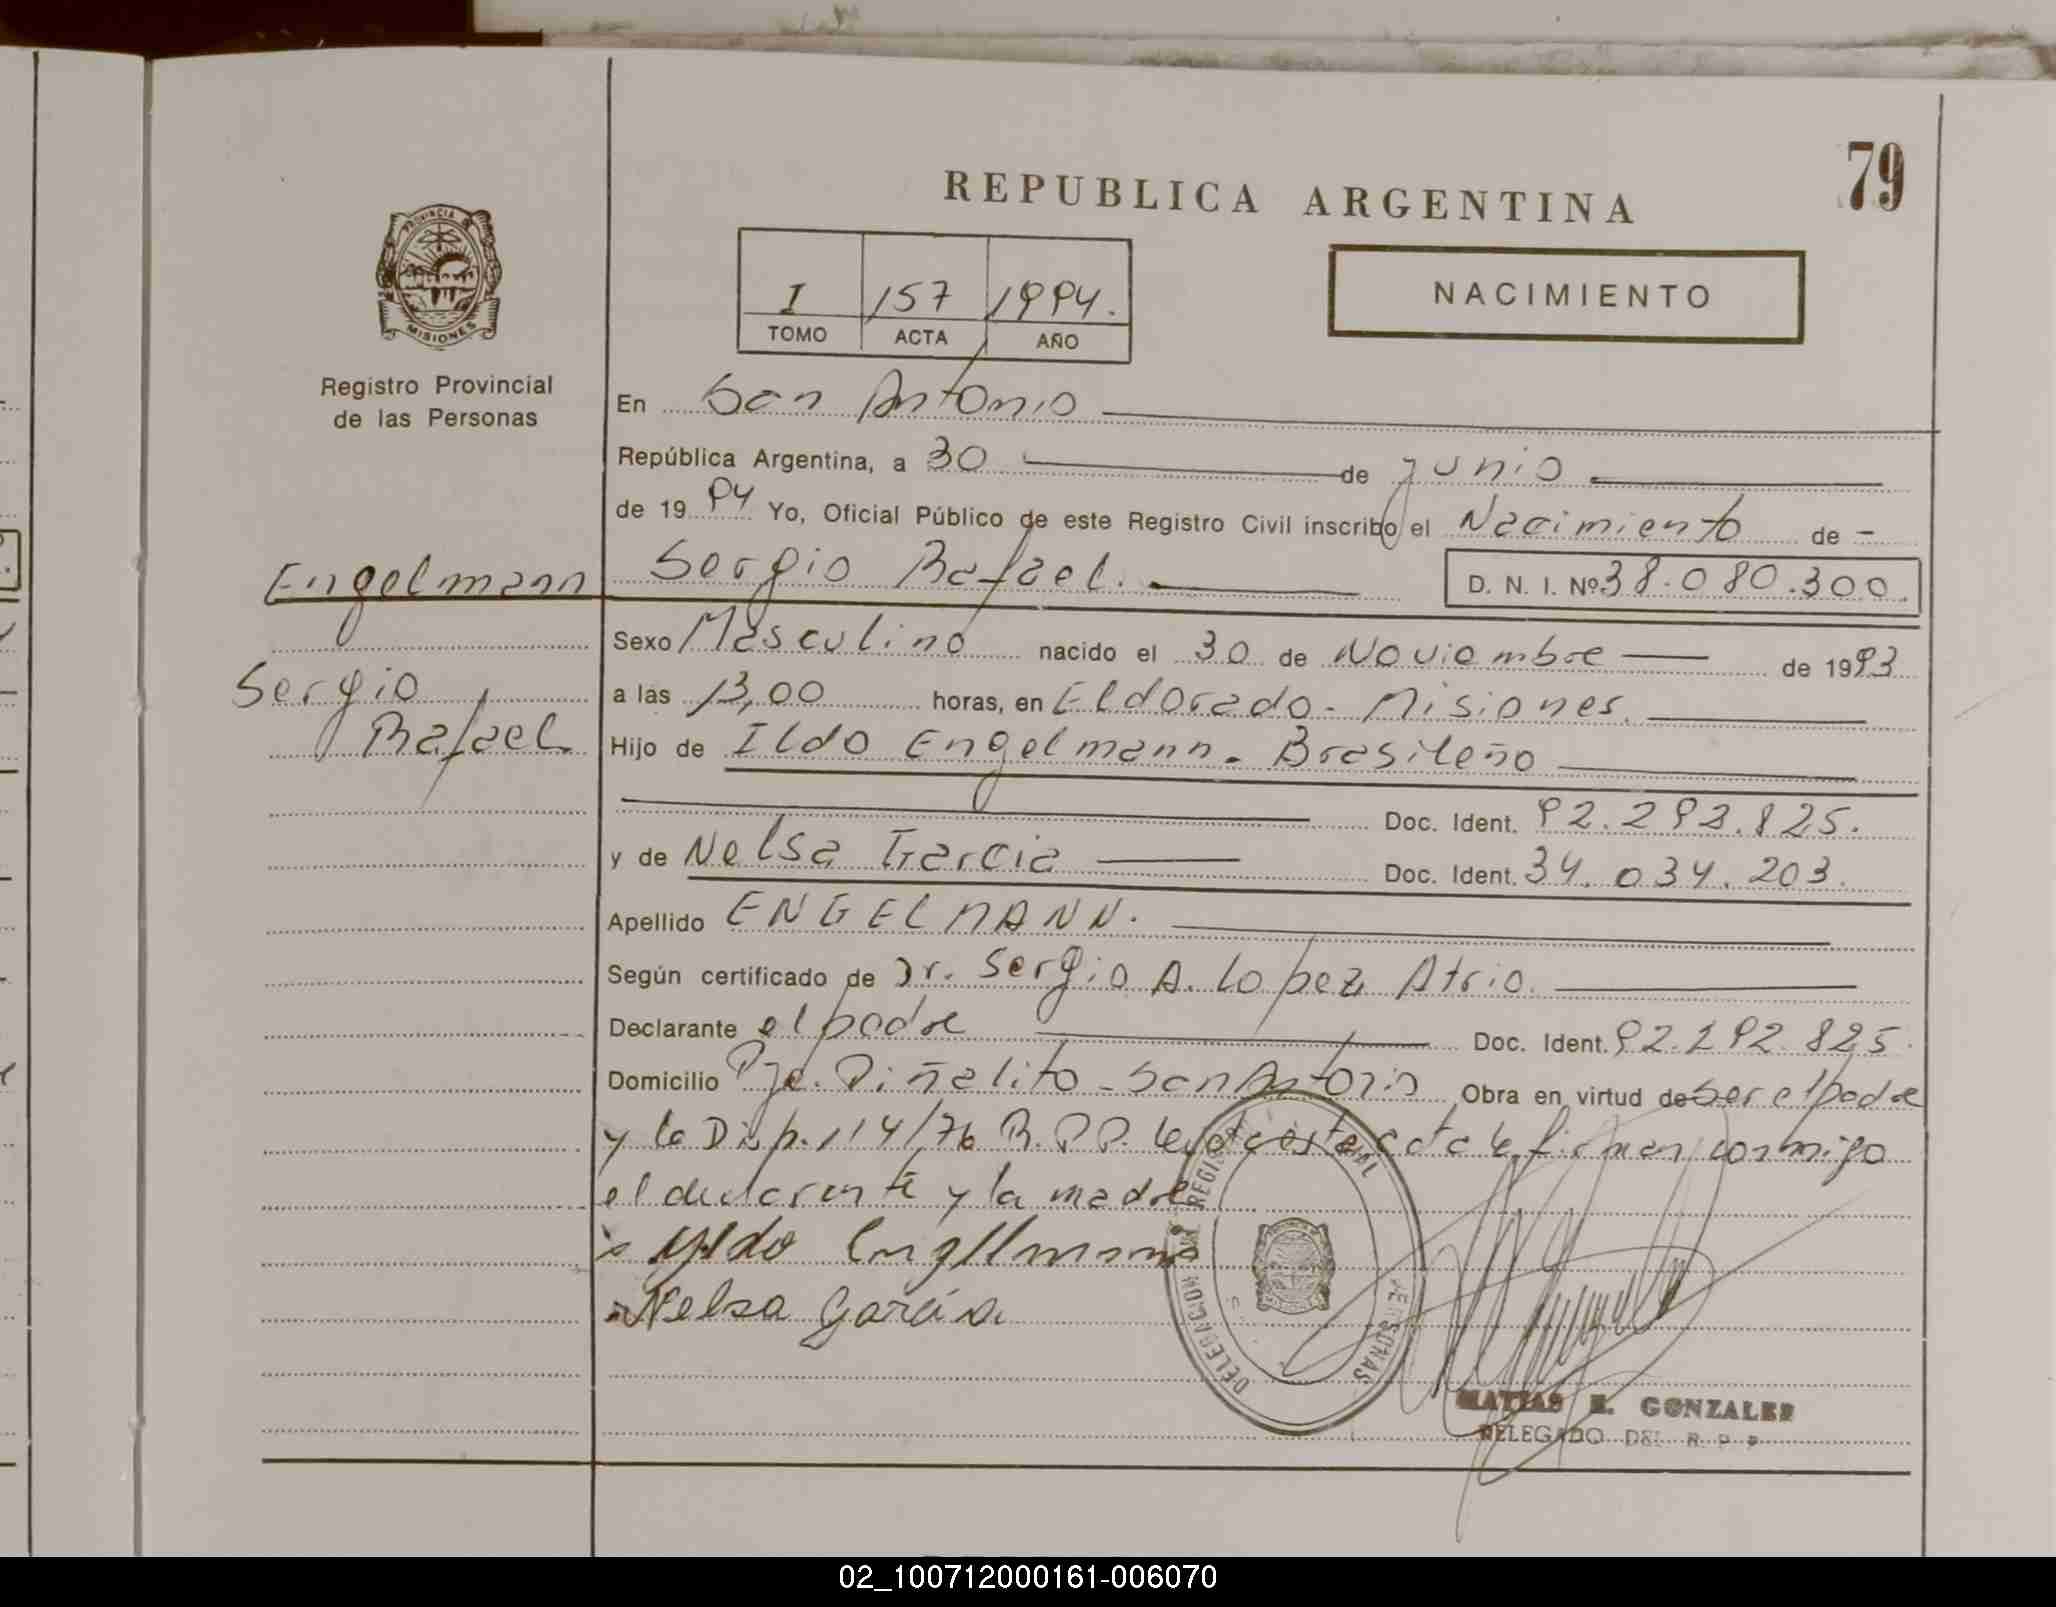 79
REPUBLICA ARGENTINA
PROVINCIA DE
MISIONES
Registro Provincial
de las Personas
I 157 1994.
TOMO ACTA AÑO
NACIMIENTO
En San Antonio
República Argentina, a 30 de junio
de 1994 Yo, Oficial Público de este Registro Civil inscribo el Nacimiento de -
Engelmann
Sergio
Rafael
Sergio Rafael.
D. N. I. Nº 38.080.300.
Sexo Masculino nacido el 30 de Noviembre de 1993
a las 13,00 horas, en Eldorado - Misiones.
Hijo de Ildo Engelmann - Brasileño
Doc. Ident. 92.292.825.
y de Nelsa Garcia Doc. Ident. 34.034.203.
Apellido ENGELMANN.
Según certificado de Dr. Sergio A. Lopez Atrio.
Declarante el padre Doc. Ident. 92.292.825.
Domicilio Pje. Piñalito - San Antonio Obra en virtud de ser el padre
y la Disp. 114/76 R.P.P. Leida este acta la firman conmigo
el declarante y la madre
Yldo Engellmann
Nelsa García
DELEGACION REGISTRO PERSONAS
MATIAS E. GONZALEZ
DELEGADO DEL R P P
02_100712000161-006070